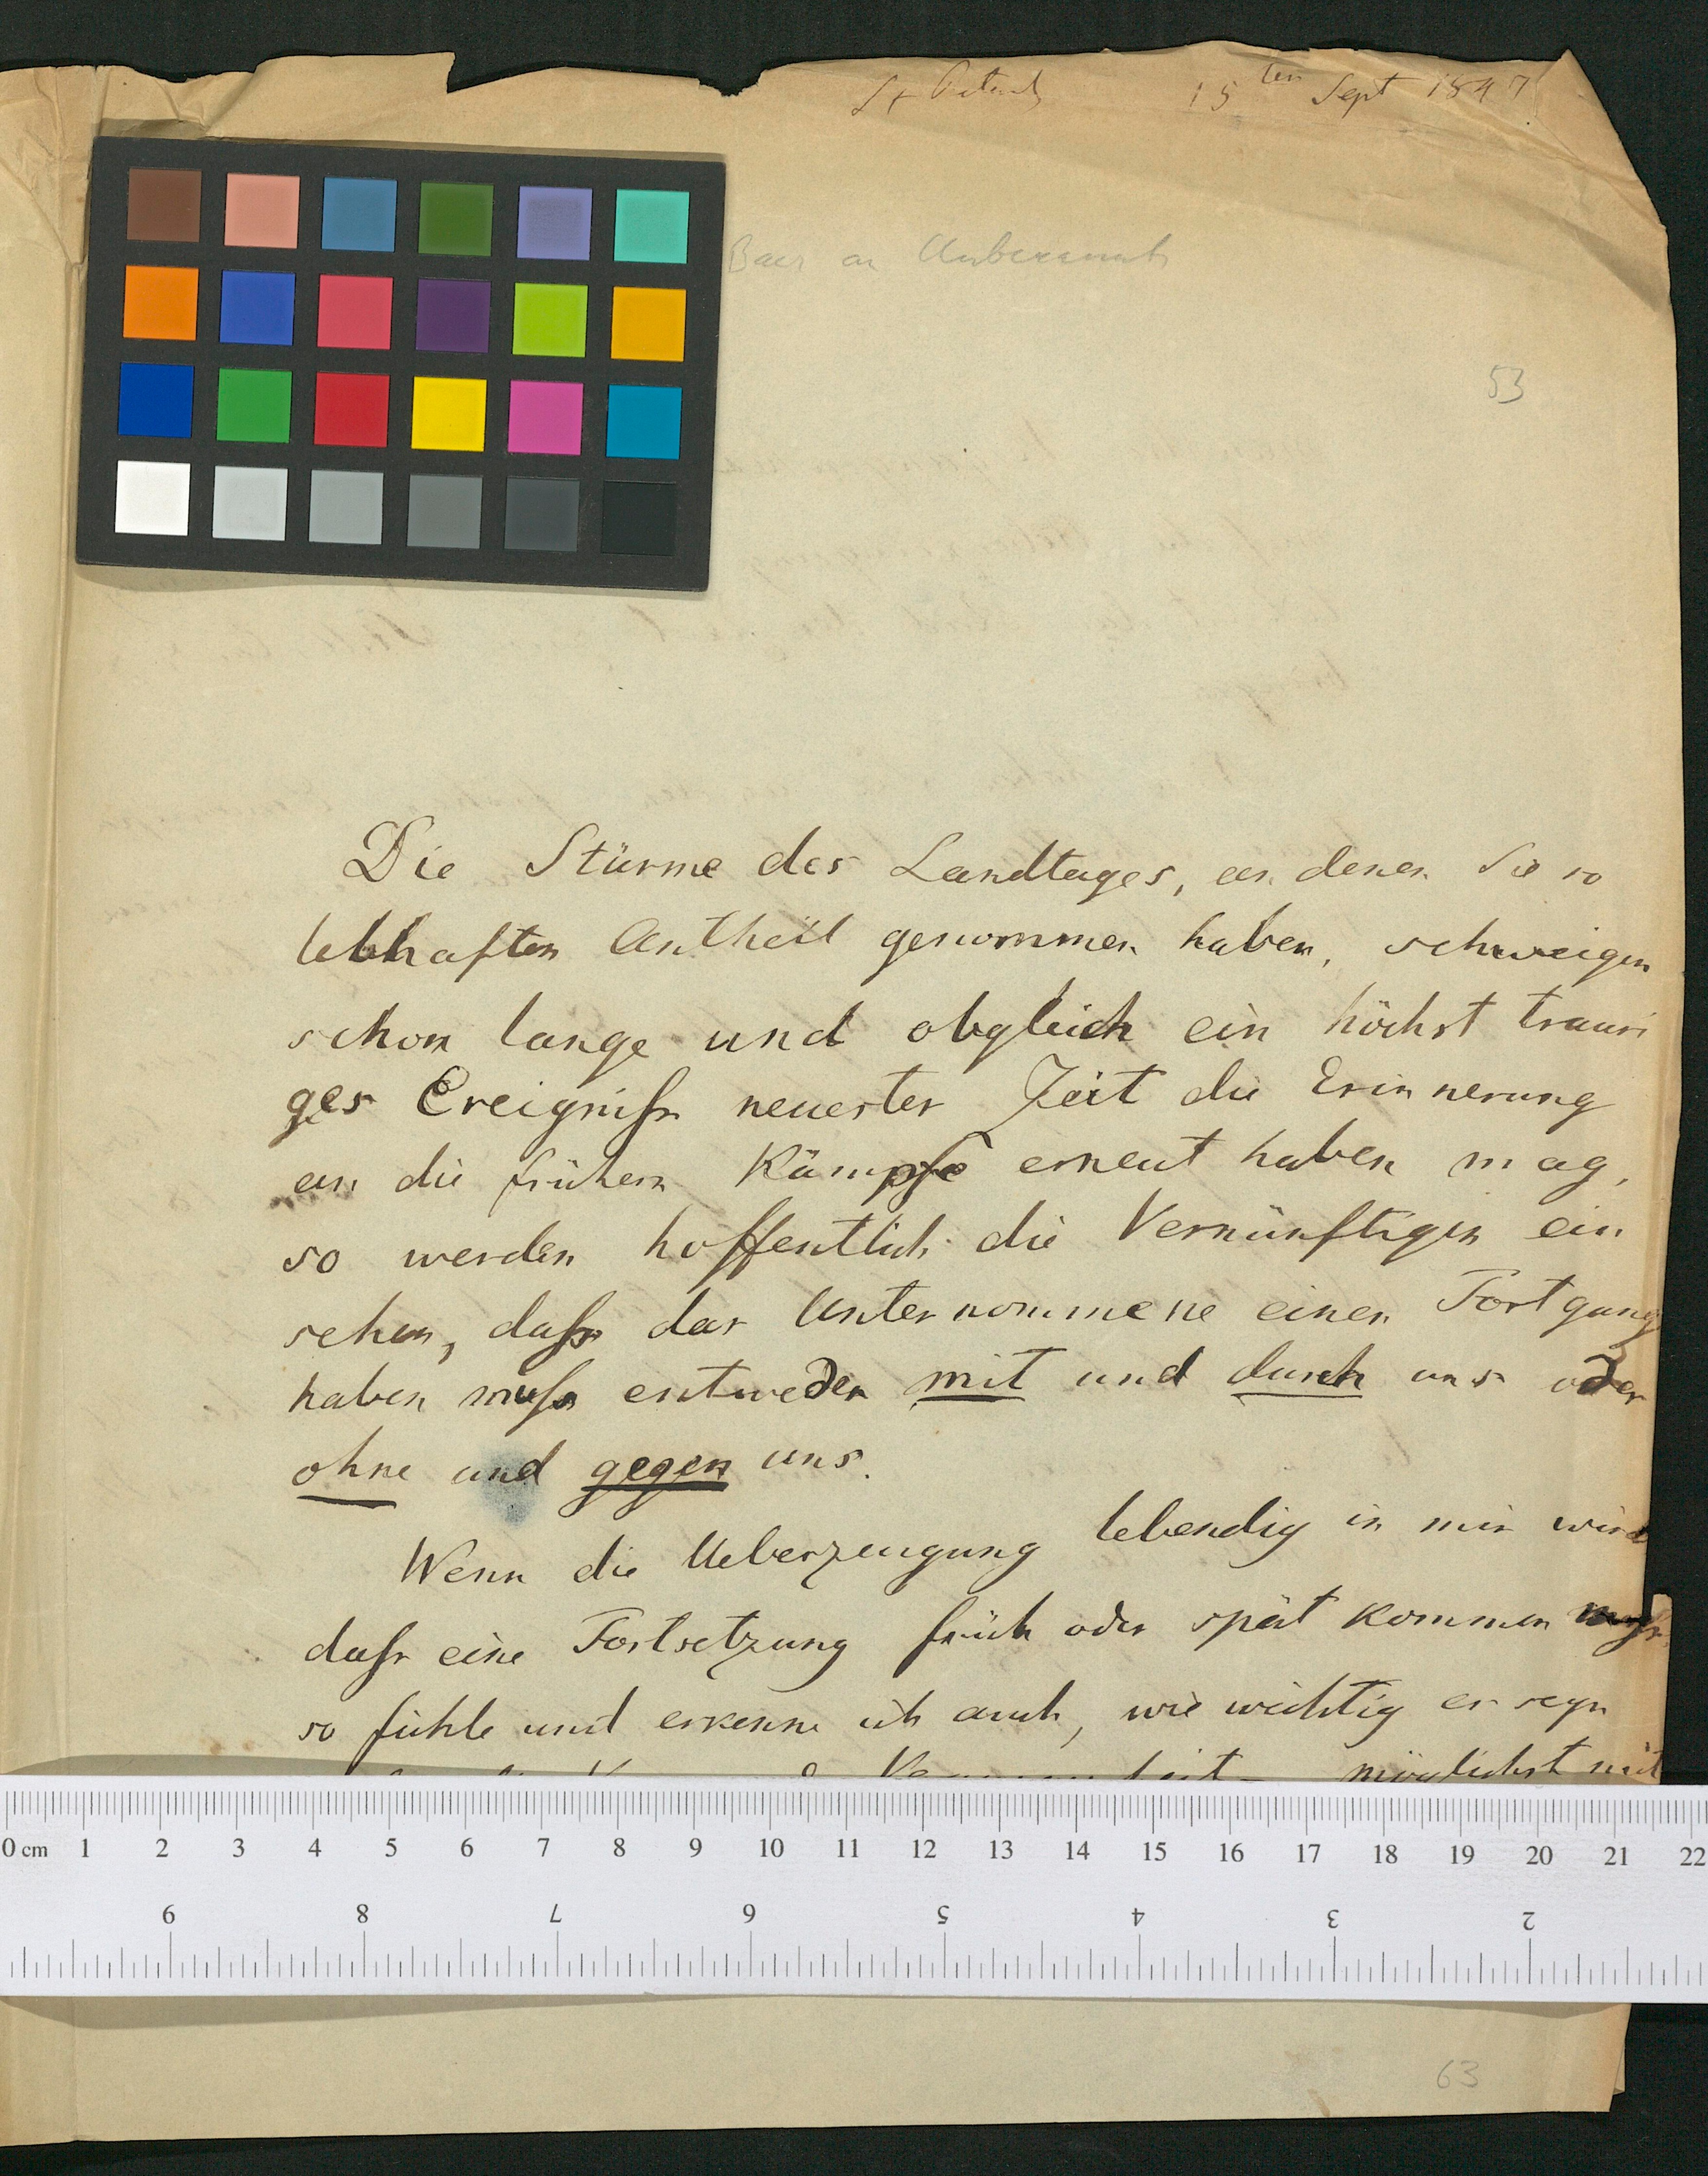 St Petersb 15ten Sept 1847
Baer an Unbekannt
53
Die Stürme des Landtages, an denen Sie so
lebhaften Antheil genommen haben, schweigen
schon lange und obgleich ein höchst trauri
ges Ereigniſs neuester Zeit die Erinnerung
an die frühern Kämpfe erneut haben mag,
so werden hoffentlich die Vernünftigen ein
sehen, daſs das Unternommene einen Fortgang
haben muſs entweder mit und durch uns oder
ohne und gegen uns.
Wenn die Ueberzeugung lebendig in mir wird
daſs eine Fortsetzung früh oder spät kommen muſs
so fühle und erkenne ich auch, wie wichtig es seyn
möglichst mit
0 cm 1 2 3 4 5 6 7 8 9 10 11 12 13 14 15 16 17 18 19 20 21 22
9 8 7 6 5 4 3 2
63